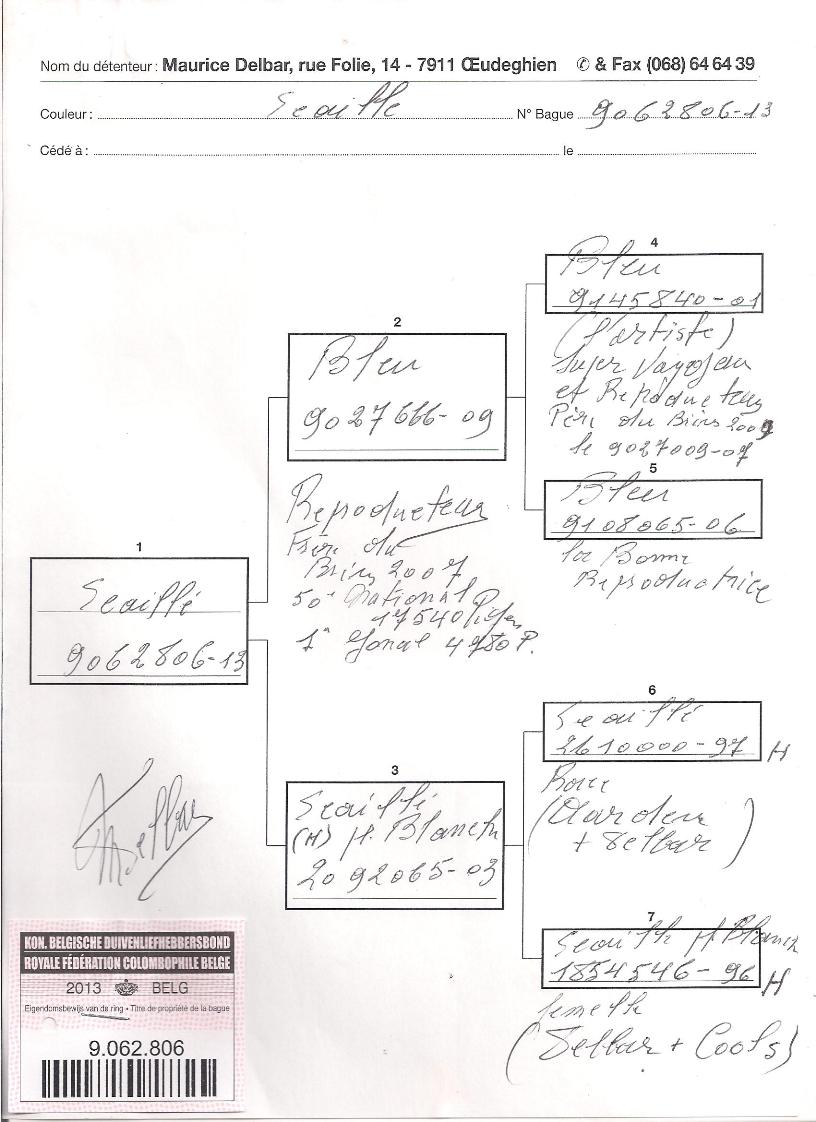 Nom du détenteur : Maurice Delbar, rue Folie, 14 - 7911 Œudeghien ✆ & Fax (068) 64 64 39
Couleur : Seaille N° Bague 9062806-13
Cédé à : le
4
Bleu
9145840-01
(l'artiste)
Super Voyageur
et Reproducteur
Père du Brive 2007
le 9027009-07
2
Bleu
9027666-09
Reproducteur
Frère du
Brive 2007
50e National
17540 Pigeons
1er Zonal 4980 P.
5
Bleu
9108065-06
la Bonne
Reproductrice
1
Seaillé
9062806-13
6
Seaillé
2610000-97 H
(Aarden
+ Delbar)
3
Seaillé
(H) pl. Blanche
2092065-03
7
Seaille pl Blanch
1854546-96 H
femelle
(Delbar + Cools)
Delbar
KON. BELGISCHE DUIVENLIEFHEBBERSBOND
ROYALE FÉDÉRATION COLOMBOPHILE BELGE
2013 BELG
Eigendomsbewijs van de ring - Titre de propriété de la bague
9.062.806